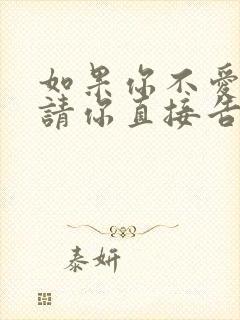 如果你不愛
請你直接告
泰妍